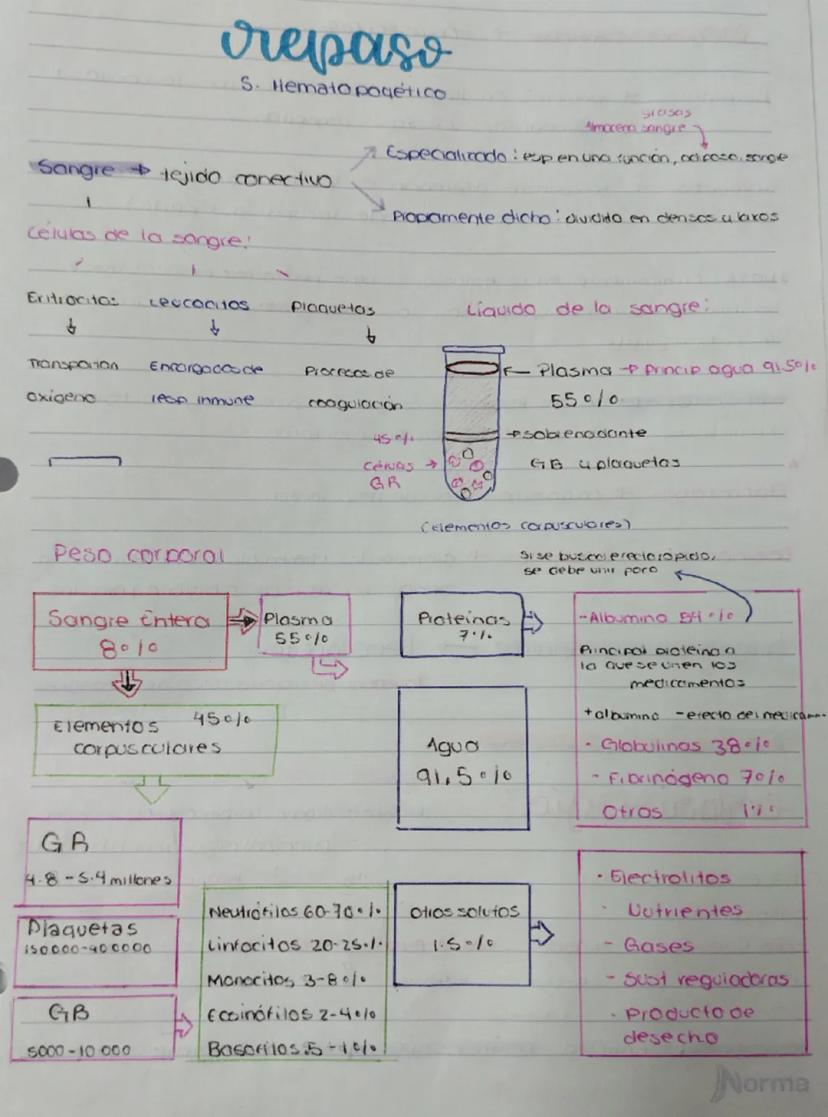 repaso
S. Hematopoyético
grasas
Almacena sangre
Sangre → tejido conectivo
Especializado: esp en una función, adiposo, sangre
Propiamente dicho: dividido en densos y laxos
Células de la sangre:
Eritrocitos Leucocitos Plaquetas
Líquido de la sangre:
Transportan Encargados de Procesos de
oxigeno resp inmune coagulación
Plasma → princip agua 91.5%
55%
45% → sobrenadante
Células → GB y plaquetas
GR
(Elementos corpusculares)
Peso corporal
si se busca efecto rápido,
se debe unir poco
Sangre Entera
8%
Plasma
55%
Proteinas
7%
- Albumina 54%
Principal proteina a
la que se unen los
medicamentos
+ albumina - efecto del medicam
- Globulinas 38%
- Fibrinógeno 70%
Otros 1%
Elementos 45%
corpusculares
Agua
91,5%
GR
4.8 - 5.4 millones
Plaquetas
150000-400000
GB
5000-10 000
Neutrófilos 60-70%
Linfocitos 20-25%
Monocitos 3-8%
Eosinófilos 2-4%
Basofilos .5 - 1%
Otros solutos
1.5%
- Electrolitos
- Nutrientes
- Gases
- Sust reguladoras
- Producto de
desecho
Norma